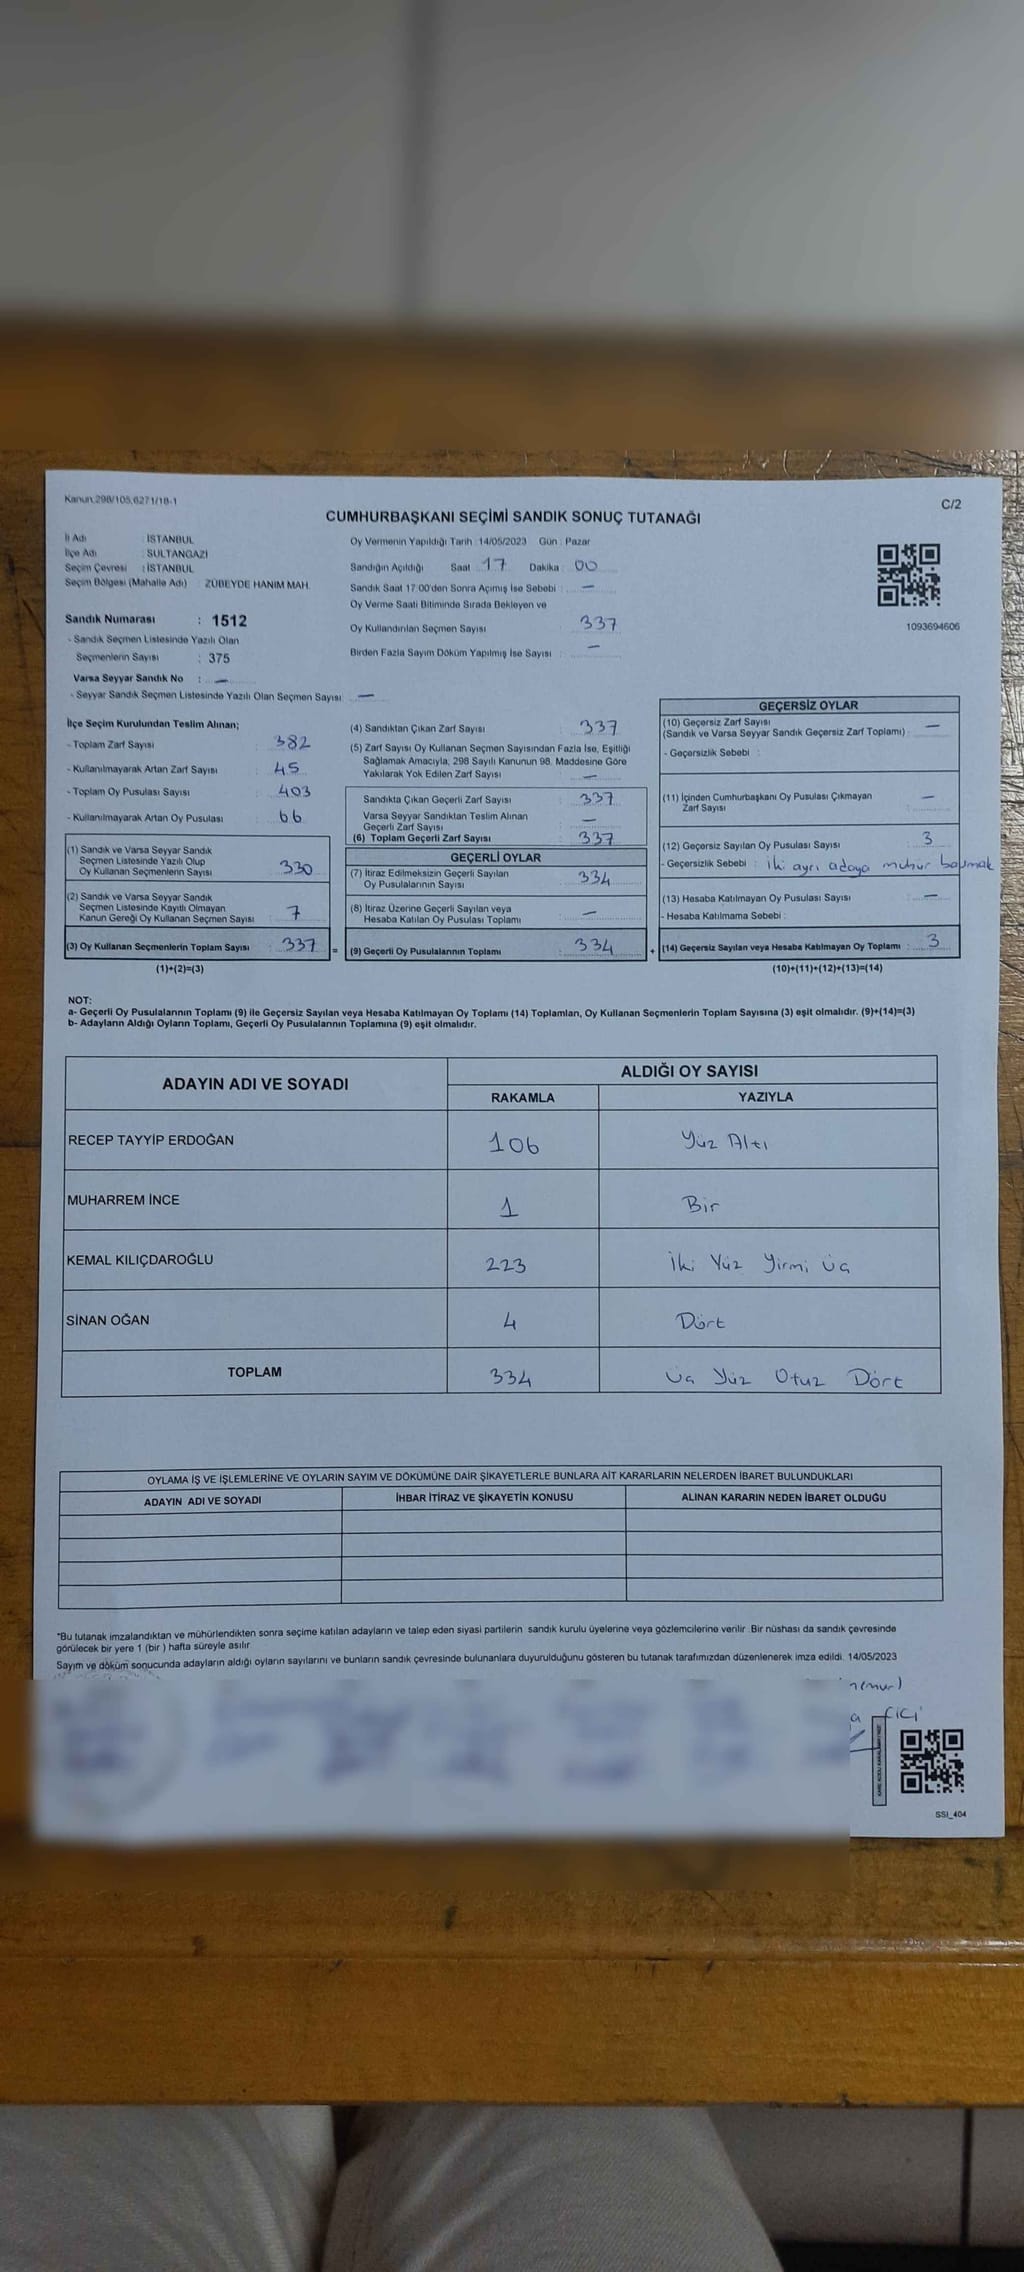 Kanun:298/105,6271/18-1
C/2
CUMHURBAŞKANI SEÇİMİ SANDIK SONUÇ TUTANAĞI
İl Adı : İSTANBUL
İlçe Adı : SULTANGAZİ
Seçim Çevresi : İSTANBUL
Seçim Bölgesi (Mahalle Adı) : ZÜBEYDE HANIM MAH.
Oy Vermenin Yapıldığı Tarih : 14/05/2023 Gün : Pazar
Sandığın Açıldığı Saat : 17 Dakika : 00
Sandık Saat 17:00'den Sonra Açımış İse Sebebi : —
Oy Verme Saati Bitiminde Sırada Bekleyen ve
Oy Kullandırılan Seçmen Sayısı : 337
Birden Fazla Sayım Döküm Yapılmış İse Sayısı : —
1093694606
Sandık Numarası : 1512
- Sandık Seçmen Listesinde Yazılı Olan
Seçmenlerin Sayısı : 375
Varsa Seyyar Sandık No : —
- Seyyar Sandık Seçmen Listesinde Yazılı Olan Seçmen Sayısı: —
İlçe Seçim Kurulundan Teslim Alınan;
- Toplam Zarf Sayısı : 382
- Kullanılmayarak Artan Zarf Sayısı : 45
- Toplam Oy Pusulası Sayısı : 403
- Kullanılmayarak Artan Oy Pusulası : 66
(1) Sandık ve Varsa Seyyar Sandık
Seçmen Listesinde Yazılı Olup
Oy Kullanan Seçmenlerin Sayısı : 330
(2) Sandık ve Varsa Seyyar Sandık
Seçmen Listesinde Kayıtlı Olmayan
Kanun Gereği Oy Kullanan Seçmen Sayısı : 7
(3) Oy Kullanan Seçmenlerin Toplam Sayısı : 337 =
(1)+(2)=(3)
(4) Sandıktan Çıkan Zarf Sayısı : 337
(5) Zarf Sayısı Oy Kullanan Seçmen Sayısından Fazla İse, Eşitliği
Sağlamak Amacıyla, 298 Sayılı Kanunun 98. Maddesine Göre
Yakılarak Yok Edilen Zarf Sayısı : —
Sandıkta Çıkan Geçerli Zarf Sayısı : 337
Varsa Seyyar Sandıktan Teslim Alınan
Geçerli Zarf Sayısı : —
(6) Toplam Geçerli Zarf Sayısı : 337
GEÇERLİ OYLAR
(7) İtiraz Edilmeksizin Geçerli Sayılan
Oy Pusulalarının Sayısı : 334
(8) İtiraz Üzerine Geçerli Sayılan veya
Hesaba Katılan Oy Pusulası Toplamı : —
(9) Geçerli Oy Pusulalarının Toplamı : 334 +
GEÇERSİZ OYLAR
(10) Geçersiz Zarf Sayısı
(Sandık ve Varsa Seyyar Sandık Geçersiz Zarf Toplamı) : —
- Geçersizlik Sebebi :
(11) İçinden Cumhurbaşkanı Oy Pusulası Çıkmayan
Zarf Sayısı : —
(12) Geçersiz Sayılan Oy Pusulası Sayısı : 3
- Geçersizlik Sebebi : iki ayrı adaya mühür basmak
(13) Hesaba Katılmayan Oy Pusulası Sayısı : —
- Hesaba Katılmama Sebebi :
(14) Geçersiz Sayılan veya Hesaba Katılmayan Oy Toplamı : 3
(10)+(11)+(12)+(13)=(14)
NOT:
a- Geçerli Oy Pusulalarının Toplamı (9) ile Geçersiz Sayılan veya Hesaba Katılmayan Oy Toplamı (14) Toplamları, Oy Kullanan Seçmenlerin Toplam Sayısına (3) eşit olmalıdır. (9)+(14)=(3)
b- Adayların Aldığı Oyların Toplamı, Geçerli Oy Pusulalarının Toplamına (9) eşit olmalıdır.
ADAYIN ADI VE SOYADI
ALDIĞI OY SAYISI
RAKAMLA YAZIYLA
RECEP TAYYİP ERDOĞAN 106 Yüz Altı
MUHARREM İNCE 1 Bir
KEMAL KILIÇDAROĞLU 223 İki Yüz Yirmi Üç
SİNAN OĞAN 4 Dört
TOPLAM 334 Üç Yüz Otuz Dört
OYLAMA İŞ VE İŞLEMLERİNE VE OYLARIN SAYIM VE DÖKÜMÜNE DAİR ŞİKAYETLERLE BUNLARA AİT KARARLARIN NELERDEN İBARET BULUNDUKLARI
ADAYIN ADI VE SOYADI İHBAR İTİRAZ VE ŞİKAYETİN KONUSU ALINAN KARARIN NEDEN İBARET OLDUĞU
*Bu tutanak imzalandıktan ve mühürlendikten sonra seçime katılan adayların ve talep eden siyasi partilerin sandık kurulu üyelerine veya gözlemcilerine verilir. Bir nüshası da sandık çevresinde
görülecek bir yere 1 (bir ) hafta süreyle asılır.
Sayım ve döküm sonucunda adayların aldığı oyların sayılarını ve bunların sandık çevresinde bulunanlara duyurulduğunu gösteren bu tutanak tarafımızdan düzenlenerek imza edildi. 14/05/2023
SSI_404